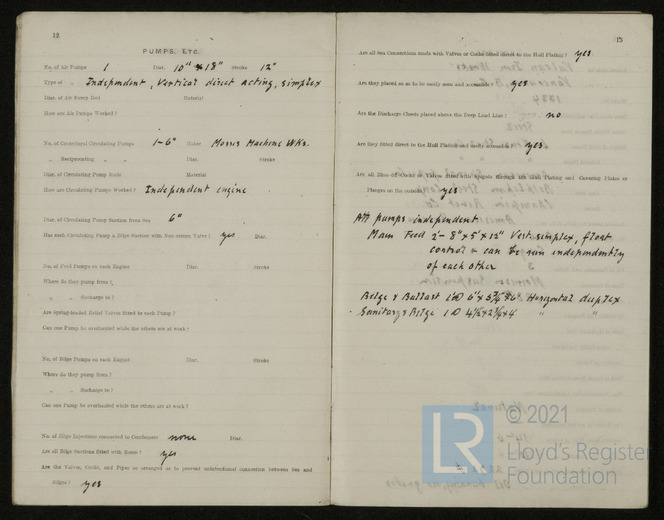 12
PUMPS, ETC.
No. of Air Pumps 1 Diar. 10" x 18" Stroke 12"
Type of „ Independent, Vertical direct acting, simplex
Diar. of Air Pump Rod Material
How are Air Pumps Worked?
No. of Centrifugal Circulating Pumps 1-6" Maker Morris Machine Wks.
„ Reciprocating „ „ Diar. Stroke
Diar. of Circulating Pump Rods Material
How are Circulating Pumps Worked? Independent engine
Diar. of Circulating Pump Suction from Sea 6"
Has each Circulating Pump a Bilge Suction with Non-return Valve? yes Diar.
No. of Feed Pumps on each Engine Diar. Stroke
Where do they pump from?
„ „ discharge to?
Are Spring-loaded Relief Valves fitted to each Pump?
Can one Pump be overhauled while the others are at work?
No. of Bilge Pumps on each Engine Diar. Stroke
Where do they pump from?
„ „ discharge to?
Can one Pump be overhauled while the others are at work?
No. of Bilge Injections connected to Condensers none Diar.
Are all Bilge Suctions fitted with Roses? yes
Are the Valves, Cocks, and Pipes so arranged as to prevent unintentional connection between Sea and
Bilges? yes
13
Are all Sea Connections made with Valves or Cocks fitted direct to the Hull Plating? yes
Are they placed so as to be easily seen and accessible? yes
Are the Discharge Chests placed above the Deep Load Line? no
Are they fitted direct to the Hull Plating and easily accessible? yes
Are all Blow-off Cocks or Valves fitted with Spigots through the Hull Plating and Covering Plates or
Flanges on the outside? yes
All pumps independent
Main Feed 2- 8" x 5" x 12" Vert. simplex, float
control & can be run independently
of each other
Bilge & Ballast 1 @ 6" x 5¾" x 6" Horizontal duplex
Sanitary & Bilge 1 @ 4½ x 2¾ x 4 „ „
LR
© 2021
Lloyd's Register
Foundation